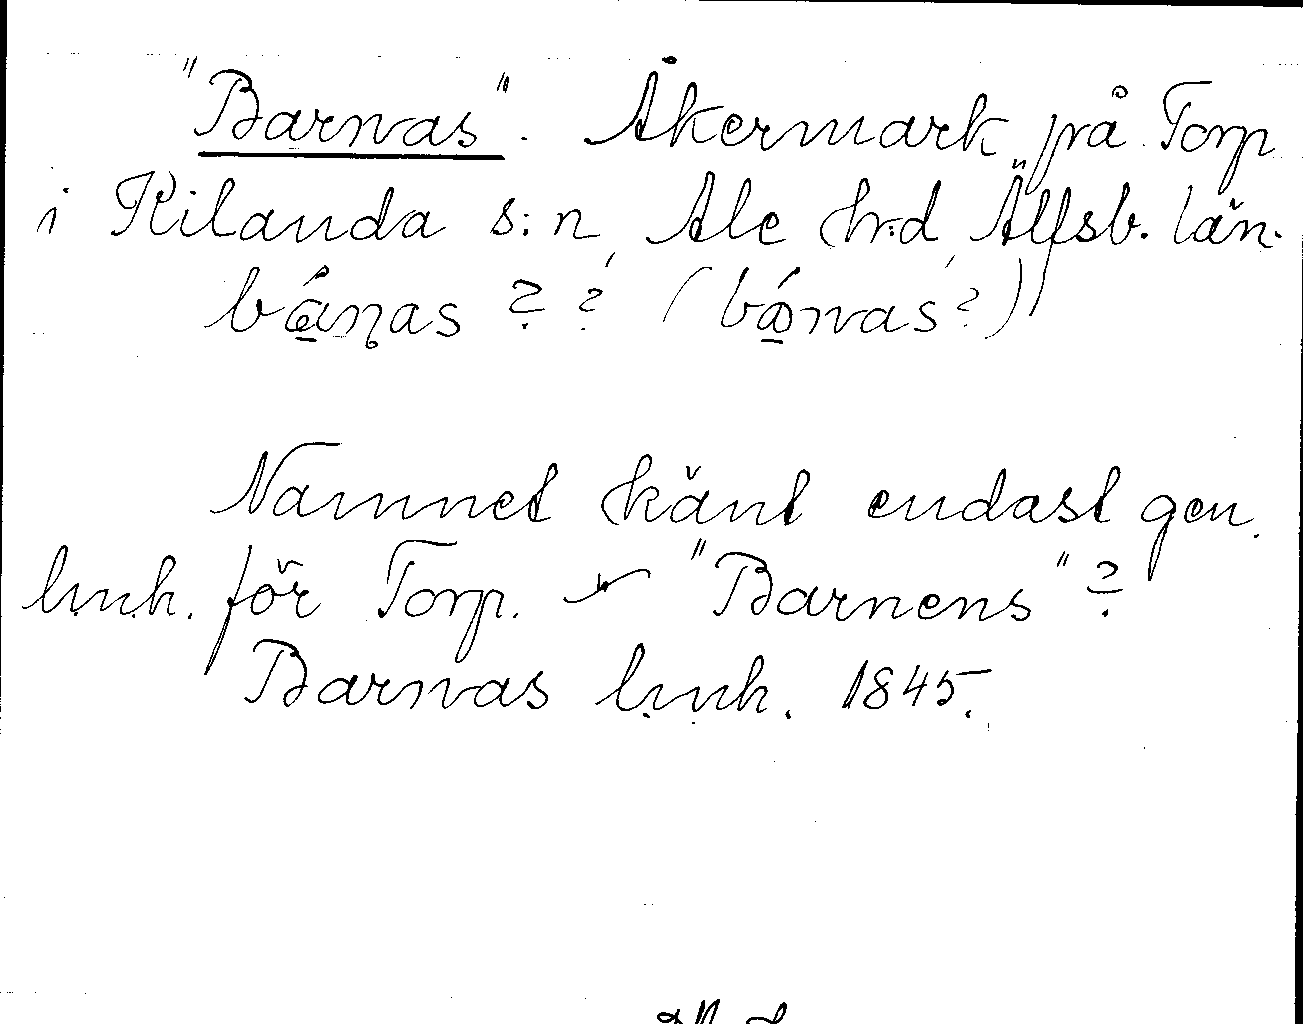 "Barnas". Åkermark på Torp
i Kilanda s:n, Ale hrd, Älfsb. län.
bánas ? ? (bánas?)
Namnet känt endast gen.
lmh. för Torp. "Barnens" ?
Barnas lmh. 1845.